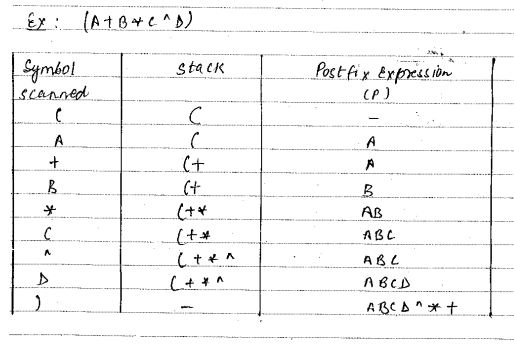 Ex : (A+B*C^D)
Symbol scanned Stack Postfix Expression (P)
( ( -
A ( A
+ (+ A
B (+ B
* (+* AB
C (+* ABC
^ (+*^ ABC
D (+*^ ABCD
) - ABCD^*+